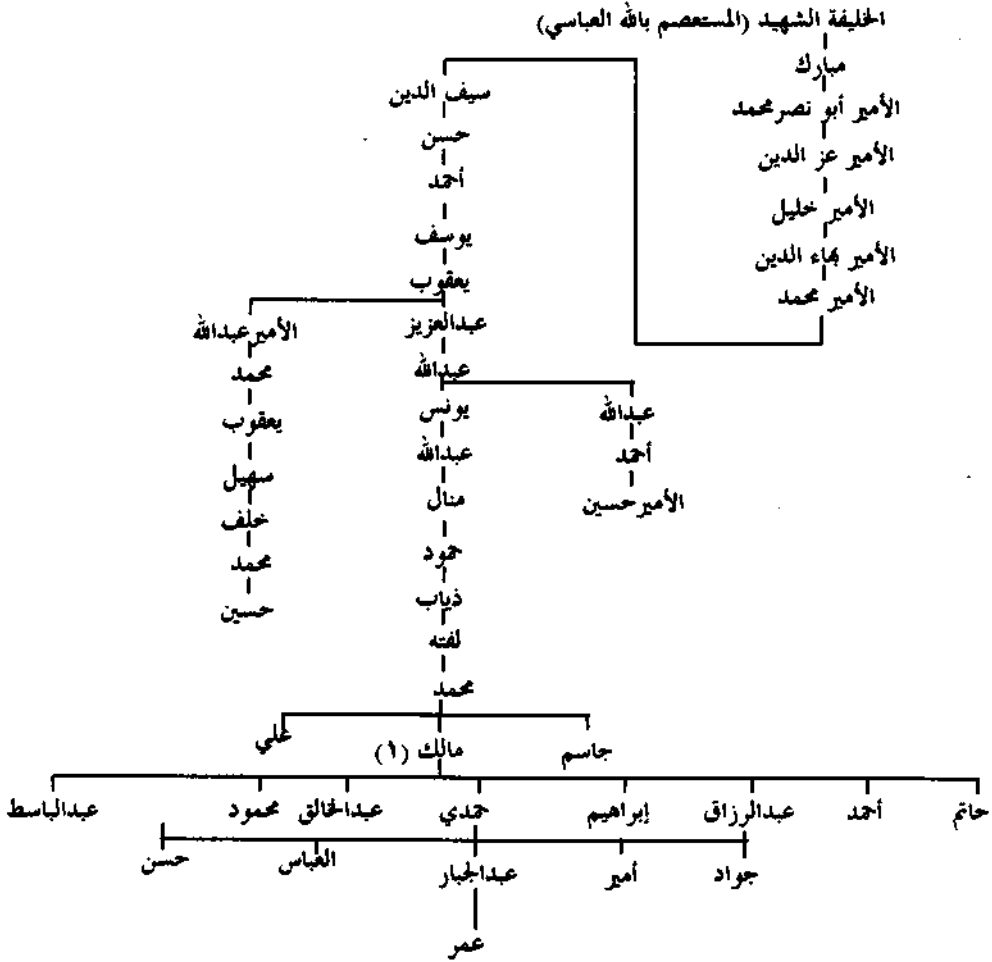 الخليفة الشهيد (المستعصم بالله العباسي)
مبارك
الأمير أبو نصر محمد
الأمير عز الدين
الأمير خليل
الأمير بهاء الدين
الأمير محمد
سيف الدين
حسن
أحمد
يوسف
يعقوب
عبدالعزيز
عبدالله
يونس
عبدالله
منال
حمود
ذياب
لفته
محمد
عبدالله
أحمد
الأمير حسين
الأمير عبدالله
محمد
يعقوب
سهيل
خلف
محمد
حسين
جاسم مالك (١) علي
حاتم أحمد عبدالرزاق إبراهيم حمدي عبدالخالق محمود عبدالباسط
جواد أمير عبدالجبار العباس حسن
عمر